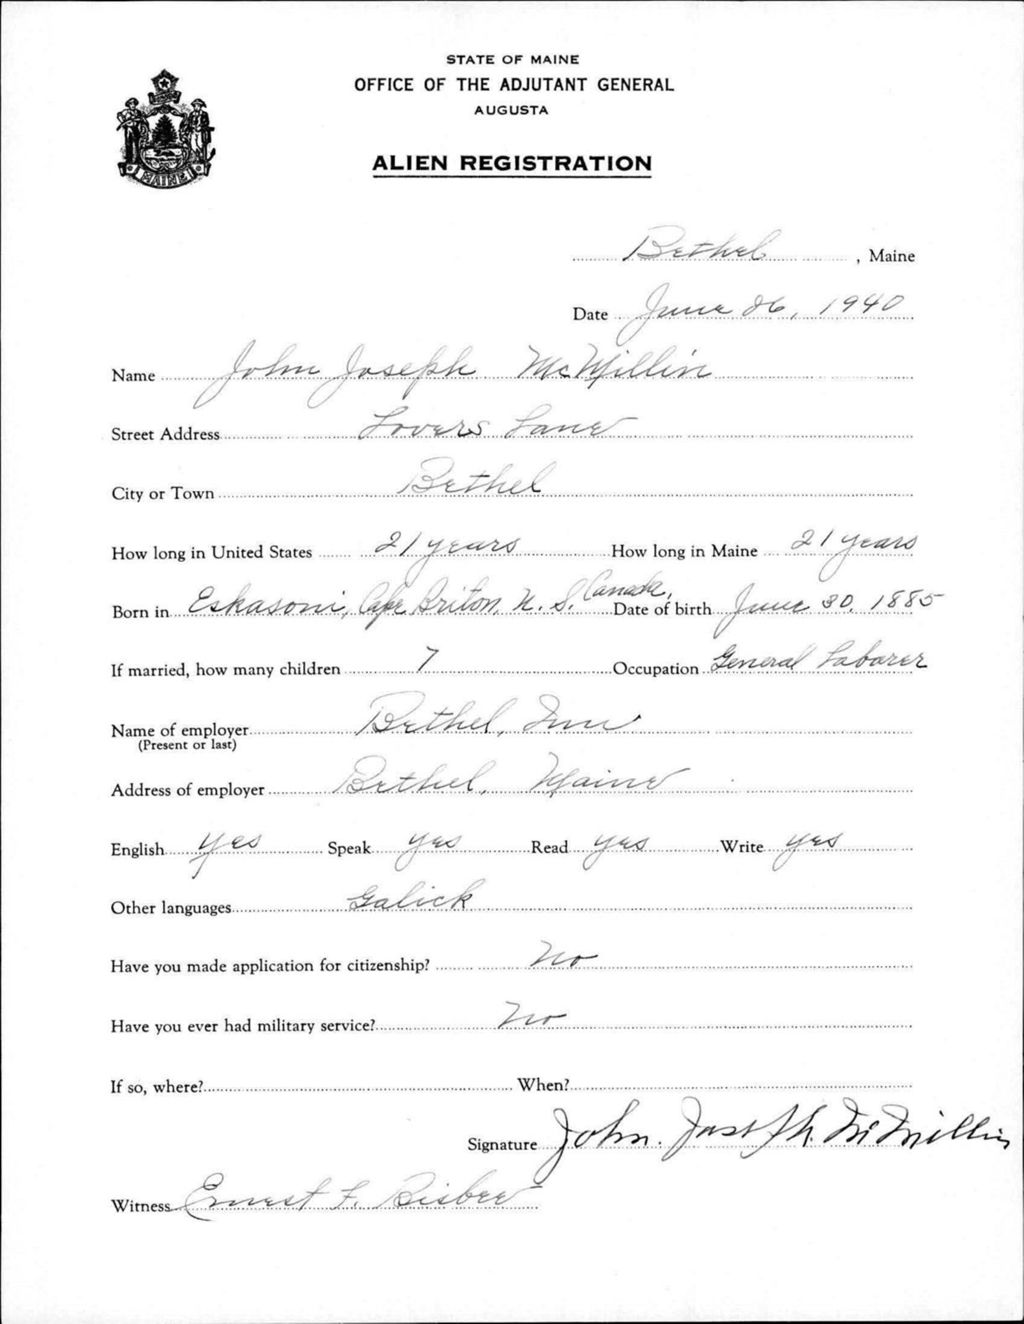 STATE OF MAINE
OFFICE OF THE ADJUTANT GENERAL
AUGUSTA
MAINE
ALIEN REGISTRATION
Bethel, Maine
Date June 26, 1940
Name John Joseph McMillin
Street Address Lovers Lane
City or Town Bethel
How long in United States 21 years How long in Maine 21 years
Born in Eskasoni, Cape Briton, N. S. Canada, Date of birth June 30, 1885
If married, how many children 7 Occupation General Laborer
Name of employer Bethel, Inn
(Present or last)
Address of employer Bethel, Maine
English yes Speak yes Read yes Write yes
Other languages Galick
Have you made application for citizenship? No
Have you ever had military service? No
If so, where? When?
Signature John. Joseph. McMillin
Witness Ernest F. Bisbee